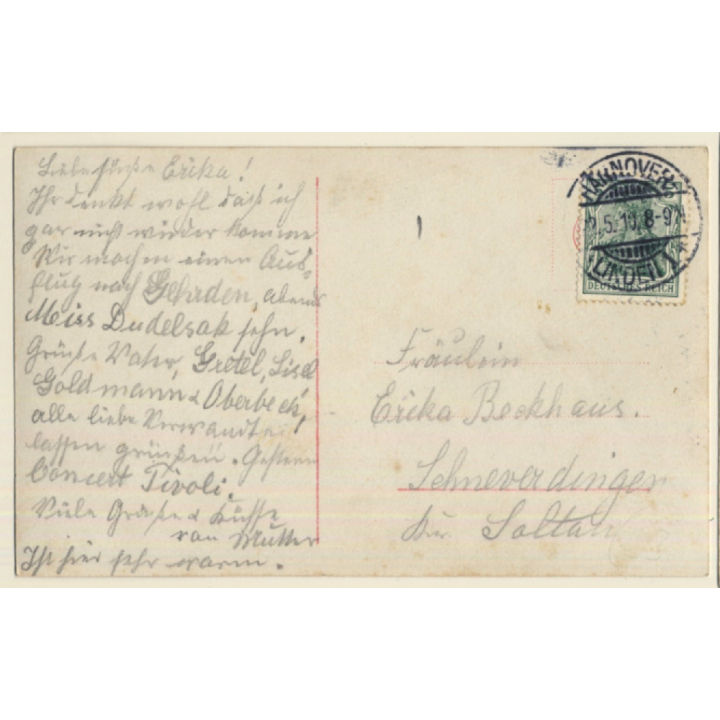 Liebe süße Erika!
Ihr denkt wohl daß ich
gar nicht wieder komme
Wir machen einen Aus-
flug nach Gehrden, abends
Miss Dudelsak sehn.
Grüße Vater, Gretel, Lisel
Goldmann & Oberbeck,
alle liebe Verwandte
lassen grüßen. Gestern
Concert Tivoli.
Viele Grüße & Küsse
von Mutter
Ist hier sehr warm.
HANNOVER
5.10. 8-9
LINDEN 1
DEUTSCHES REICH
Fräulein
Erika Bockhaus.
Schneverdingen
Soltau